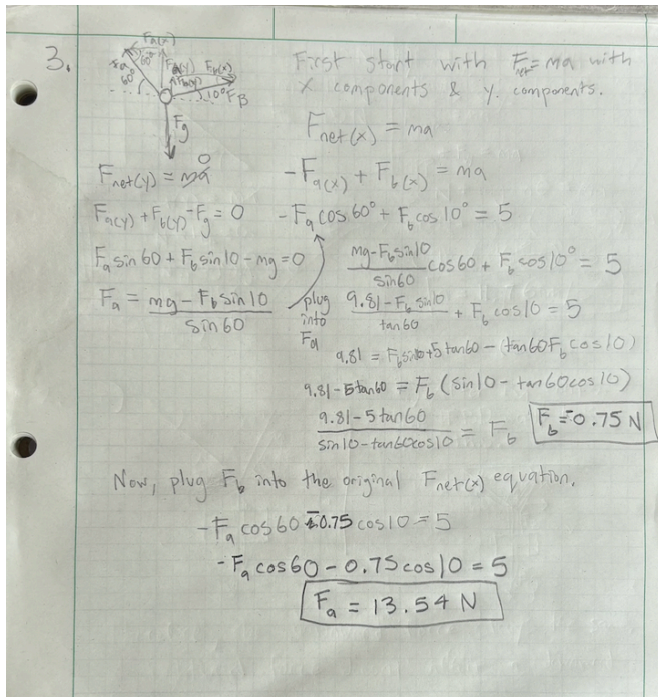 3.
Fa(x)
60°
Fa
Fa(y)
Fb(y)
Fb(x)
60°
10°
FB
Fg
First start with Fnet = ma with
x components & y components.
Fnet(x) = ma
-Fa(x) + Fb(x) = ma
-Fa cos 60° + Fb cos 10° = 5
Fnet(y) = ma 0
Fa(y) + Fb(y) - Fg = 0
Fa sin 60 + Fb sin 10 - mg = 0
Fa = mg - Fb sin 10 / sin 60
plug
into
Fa
mg - Fb sin 10 / sin 60 cos 60 + Fb cos 10° = 5
9.81 - Fb sin 10 / tan 60 + Fb cos 10 = 5
9.81 = Fb sin 10 + 5 tan 60 - (tan 60 Fb cos 10)
9.81 - 5 tan 60 = Fb (sin 10 - tan 60 cos 10)
9.81 - 5 tan 60 / sin 10 - tan 60 cos 10 = Fb
Fb = -0.75 N
Now, plug Fb into the original Fnet(x) equation.
-Fa cos 60 - 0.75 cos 10 = 5
-Fa cos 60 - 0.75 cos 10 = 5
Fa = 13.54 N